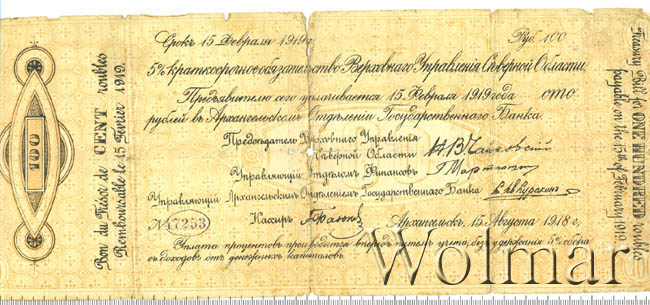 Срокъ 15 Февраля 1919 г.
Руб. 100
5% краткосрочное обязательство Верховнаго Управленія Сѣверной Области.
Предъявителю сего уплачивается 15 Февраля 1919 года сто
рублей въ Архангельскомъ Отдѣленіи Государственнаго Банка.
Предсѣдатель Верховнаго Управленія
Сѣверной Области Н. В. Чайковскій
Управляющій Отдѣломъ Финансовъ
Управляющій Архангельскимъ Отдѣленіемъ Государственнаго Банка
№ 17253
Кассиръ
Архангельскъ, 15 Августа 1918 г.
Уплата процентовъ производится впередъ путемъ учета, безъ удержанія 5% сбора
съ доходовъ отъ денежныхъ капиталовъ.
100
Bon du Trésor de CENT roubles
Remboursable le 15 Février 1919.
Treasury Bill for ONE HUNDRED roubles
payable on the 15th of February 1919.
Wolmar